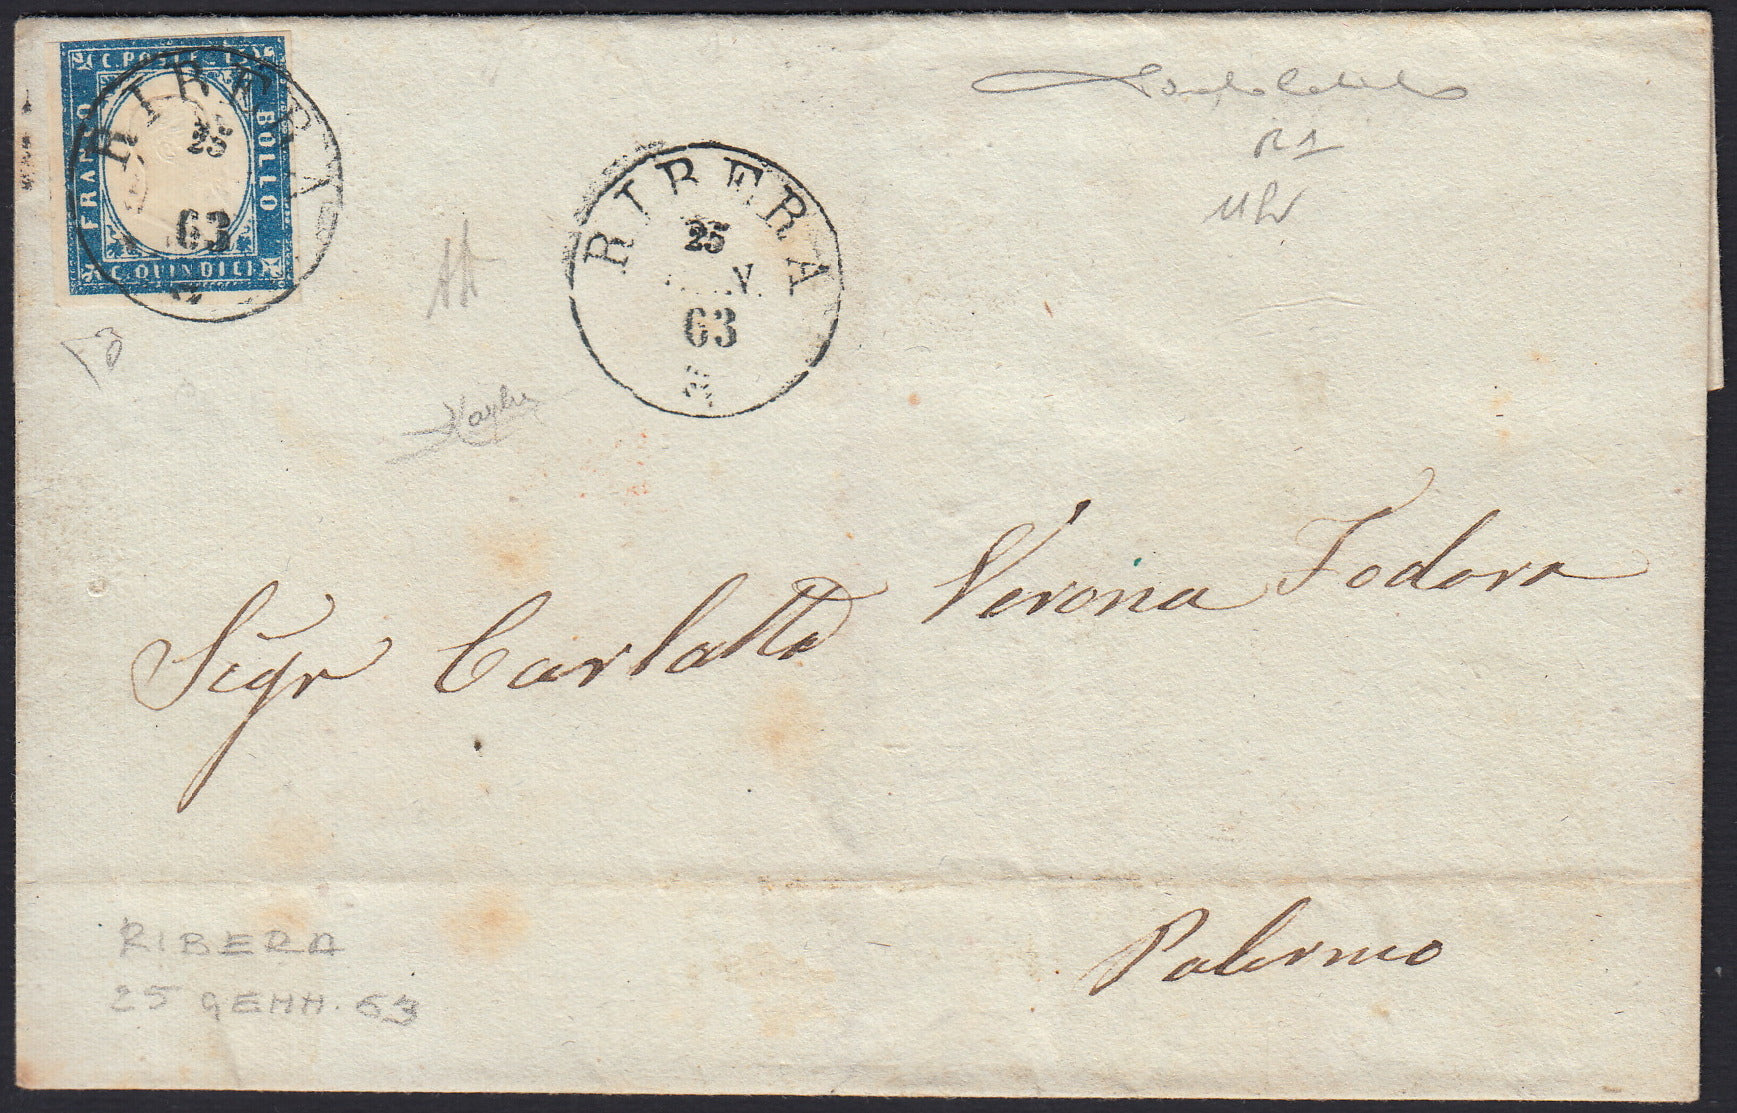 C. POSTE - 15
FRANCO
BOLLO
C. QUINDICI
RIBERA
25
63
RIBERA
25
63
R1
Sigr Carlotta Verona Todora
Palermo
RIBERA
25 GENN. 63